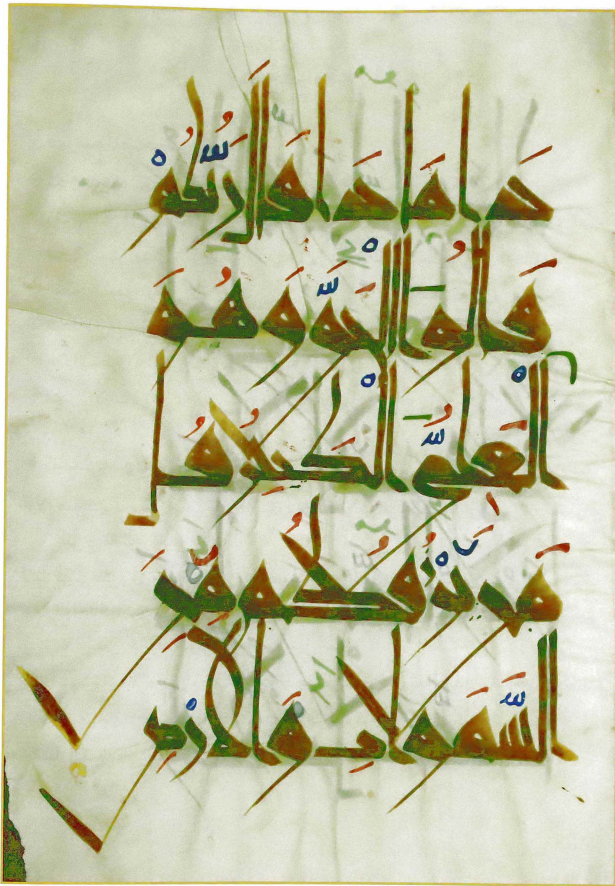 ماذا قَالَ رَبُّكُمْ
قَالُوا الْحَقَّ وَهُوَ
الْعَلِيُّ الْكَبِيرُ قُل
مَن يَرْزُقُكُم مِّنَ
السَّمَوَاتِ وَالْأَرْضِ